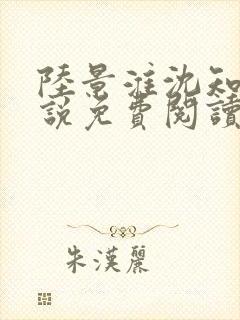 陸景淮沈知
說免費閱讀
朱漢麗